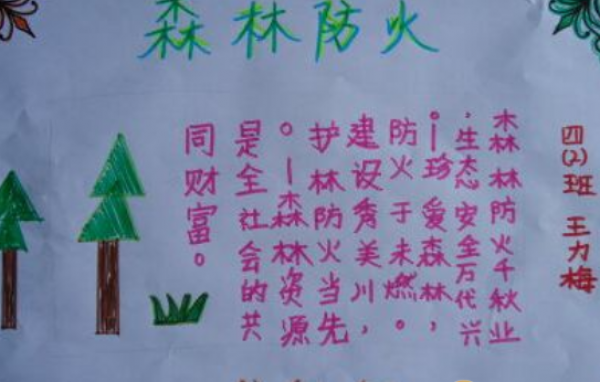 森林防火
四(2)班 王力梅
森林防火千秋业
，生态安全万代兴
。—珍爱森林，
防火于未燃。
建设秀美川，
护林防火当先
。—森林资源
是全社会的共
同财富。